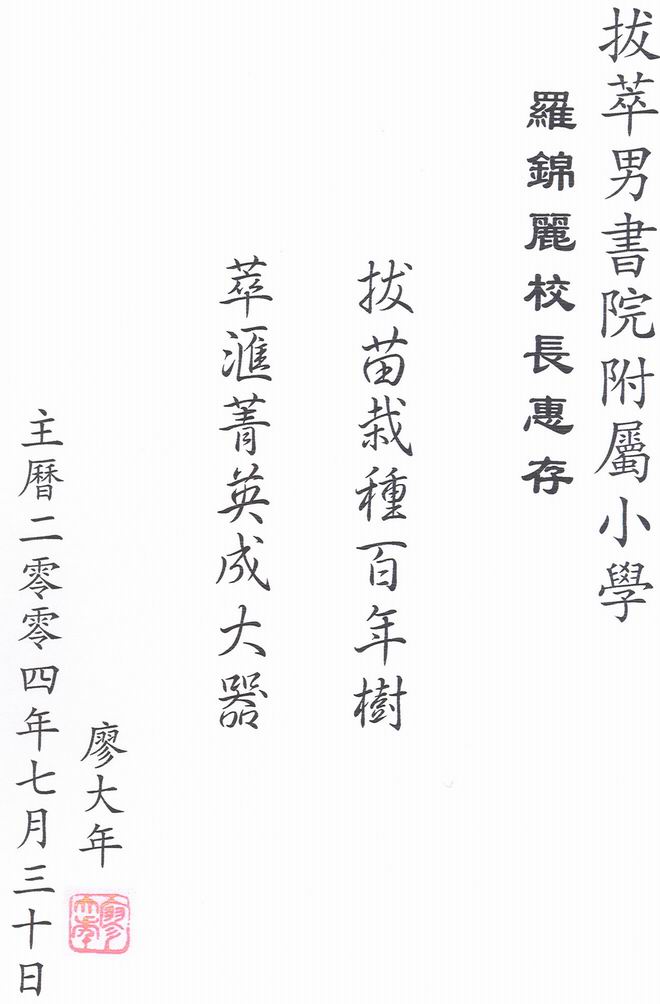 拔萃男書院附屬小學
羅錦麗校長惠存
拔苗栽種百年樹
萃滙菁英成大器
廖大年
主曆二零零四年七月三十日